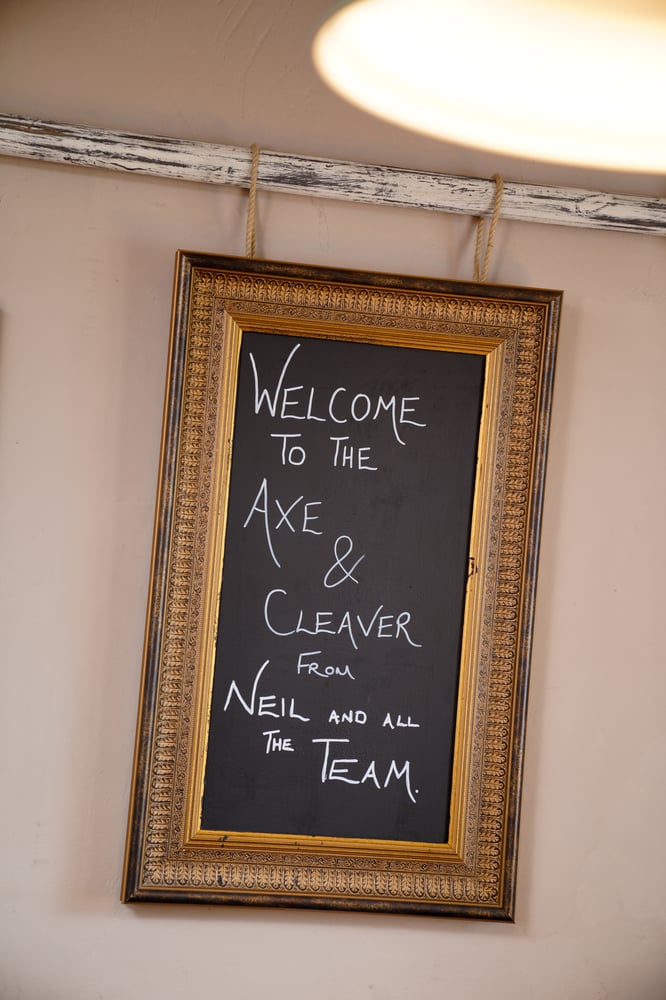 WELCOME
TO THE
AXE
&
CLEAVER
FROM
NEIL AND ALL
THE TEAM.